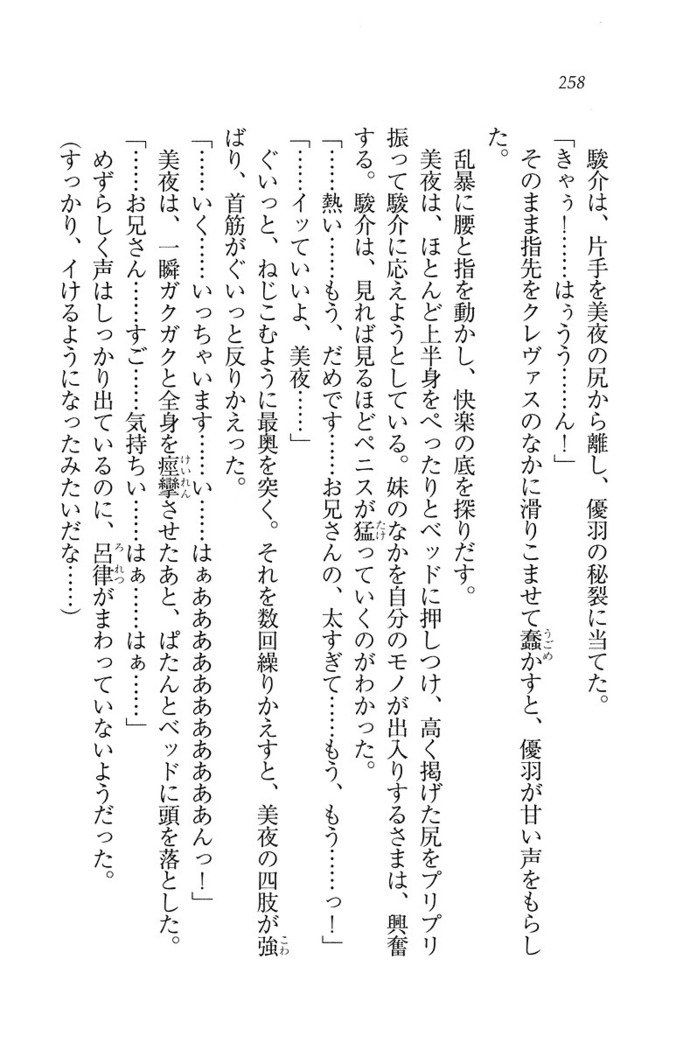 258
駿介は、片手を美夜の尻から離し、優羽の秘裂に当てた。
「きゃぅ！……はぅうう……ん！」
そのまま指先をクレヴァスのなかに滑りこませて蠢かすと、優羽が甘い声をもらし
た。
乱暴に腰と指を動かし、快楽の底を探りだす。
美夜は、ほとんど上半身をぺったりとベッドに押しつけ、高く掲げた尻をプリプリ
振って駿介に応えようとしている。妹のなかを自分のモノが出入りするさまは、興奮
する。駿介は、見れば見るほどペニスが猛っていくのがわかった。
「……熱い……もう、だめです……お兄さんの、太すぎて……もう、もう……っ！」
「……イッていいよ、美夜……」
ぐいっと、ねじこむように最奥を突く。それを数回繰りかえすと、美夜の四肢が強
ばり、首筋がぐいっと反りかえった。
「……いく……いっちゃいます……い……はぁああああああああああんっ！」
美夜は、一瞬ガクガクと全身を痙攣させたあと、ぱたんとベッドに頭を落とした。
「……お兄さん……すご……気持ちい……はぁ……はぁ……」
めずらしく声はしっかり出ているのに、呂律がまわっていないようだった。
(すっかり、イけるようになったみたいだな……)